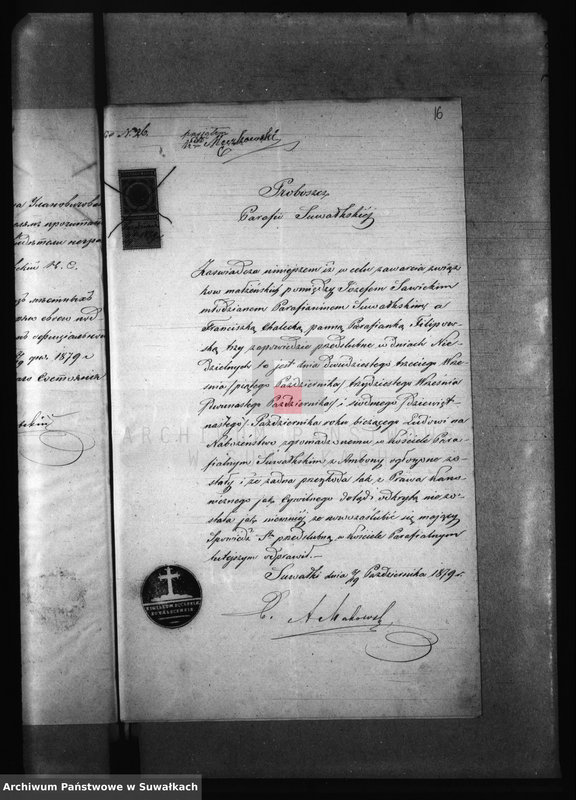 16
N 26.
Proboszcz
Parafii Suwałkskiéj
Zaświadcza niniejszem iż w celu zawarcia związ-
ków małżeńskich pomiędzy Józefem Sawickim
młodzianem Parafianinem Suwałkskim, a
Franciszką Chalecką panną Parafianką Filipow-
ską trzy zapowiedzie przedślubne w dniach Nie-
dzielnych to jest dnia dwudziestego trzeciego Wrze-
śnia /piątego Października/ trzydziestego Września
/dwunastego Października/ i siódmego /dziewięt-
nastego/ Października roku bieżącego Ludowi na
Nabożeństwo zgromadzonemu w kościele Para-
fialnym Suwałkskim z Ambony ogłoszone zo-
stały i że żadna przeszkoda tak z Prawa kano-
nicznego jak Cywilnego dotąd odkrytą nie zo-
stała jak niemniéj że nowozaślubić się mający
Spowiedź Stą przedślubną w kościele Parafialnym
tutejszym odprawił.—
Suwałki dnia 7/19 Października 1879 r.
A Makowski
1879 г
Archiwum Państwowe w Suwałkach